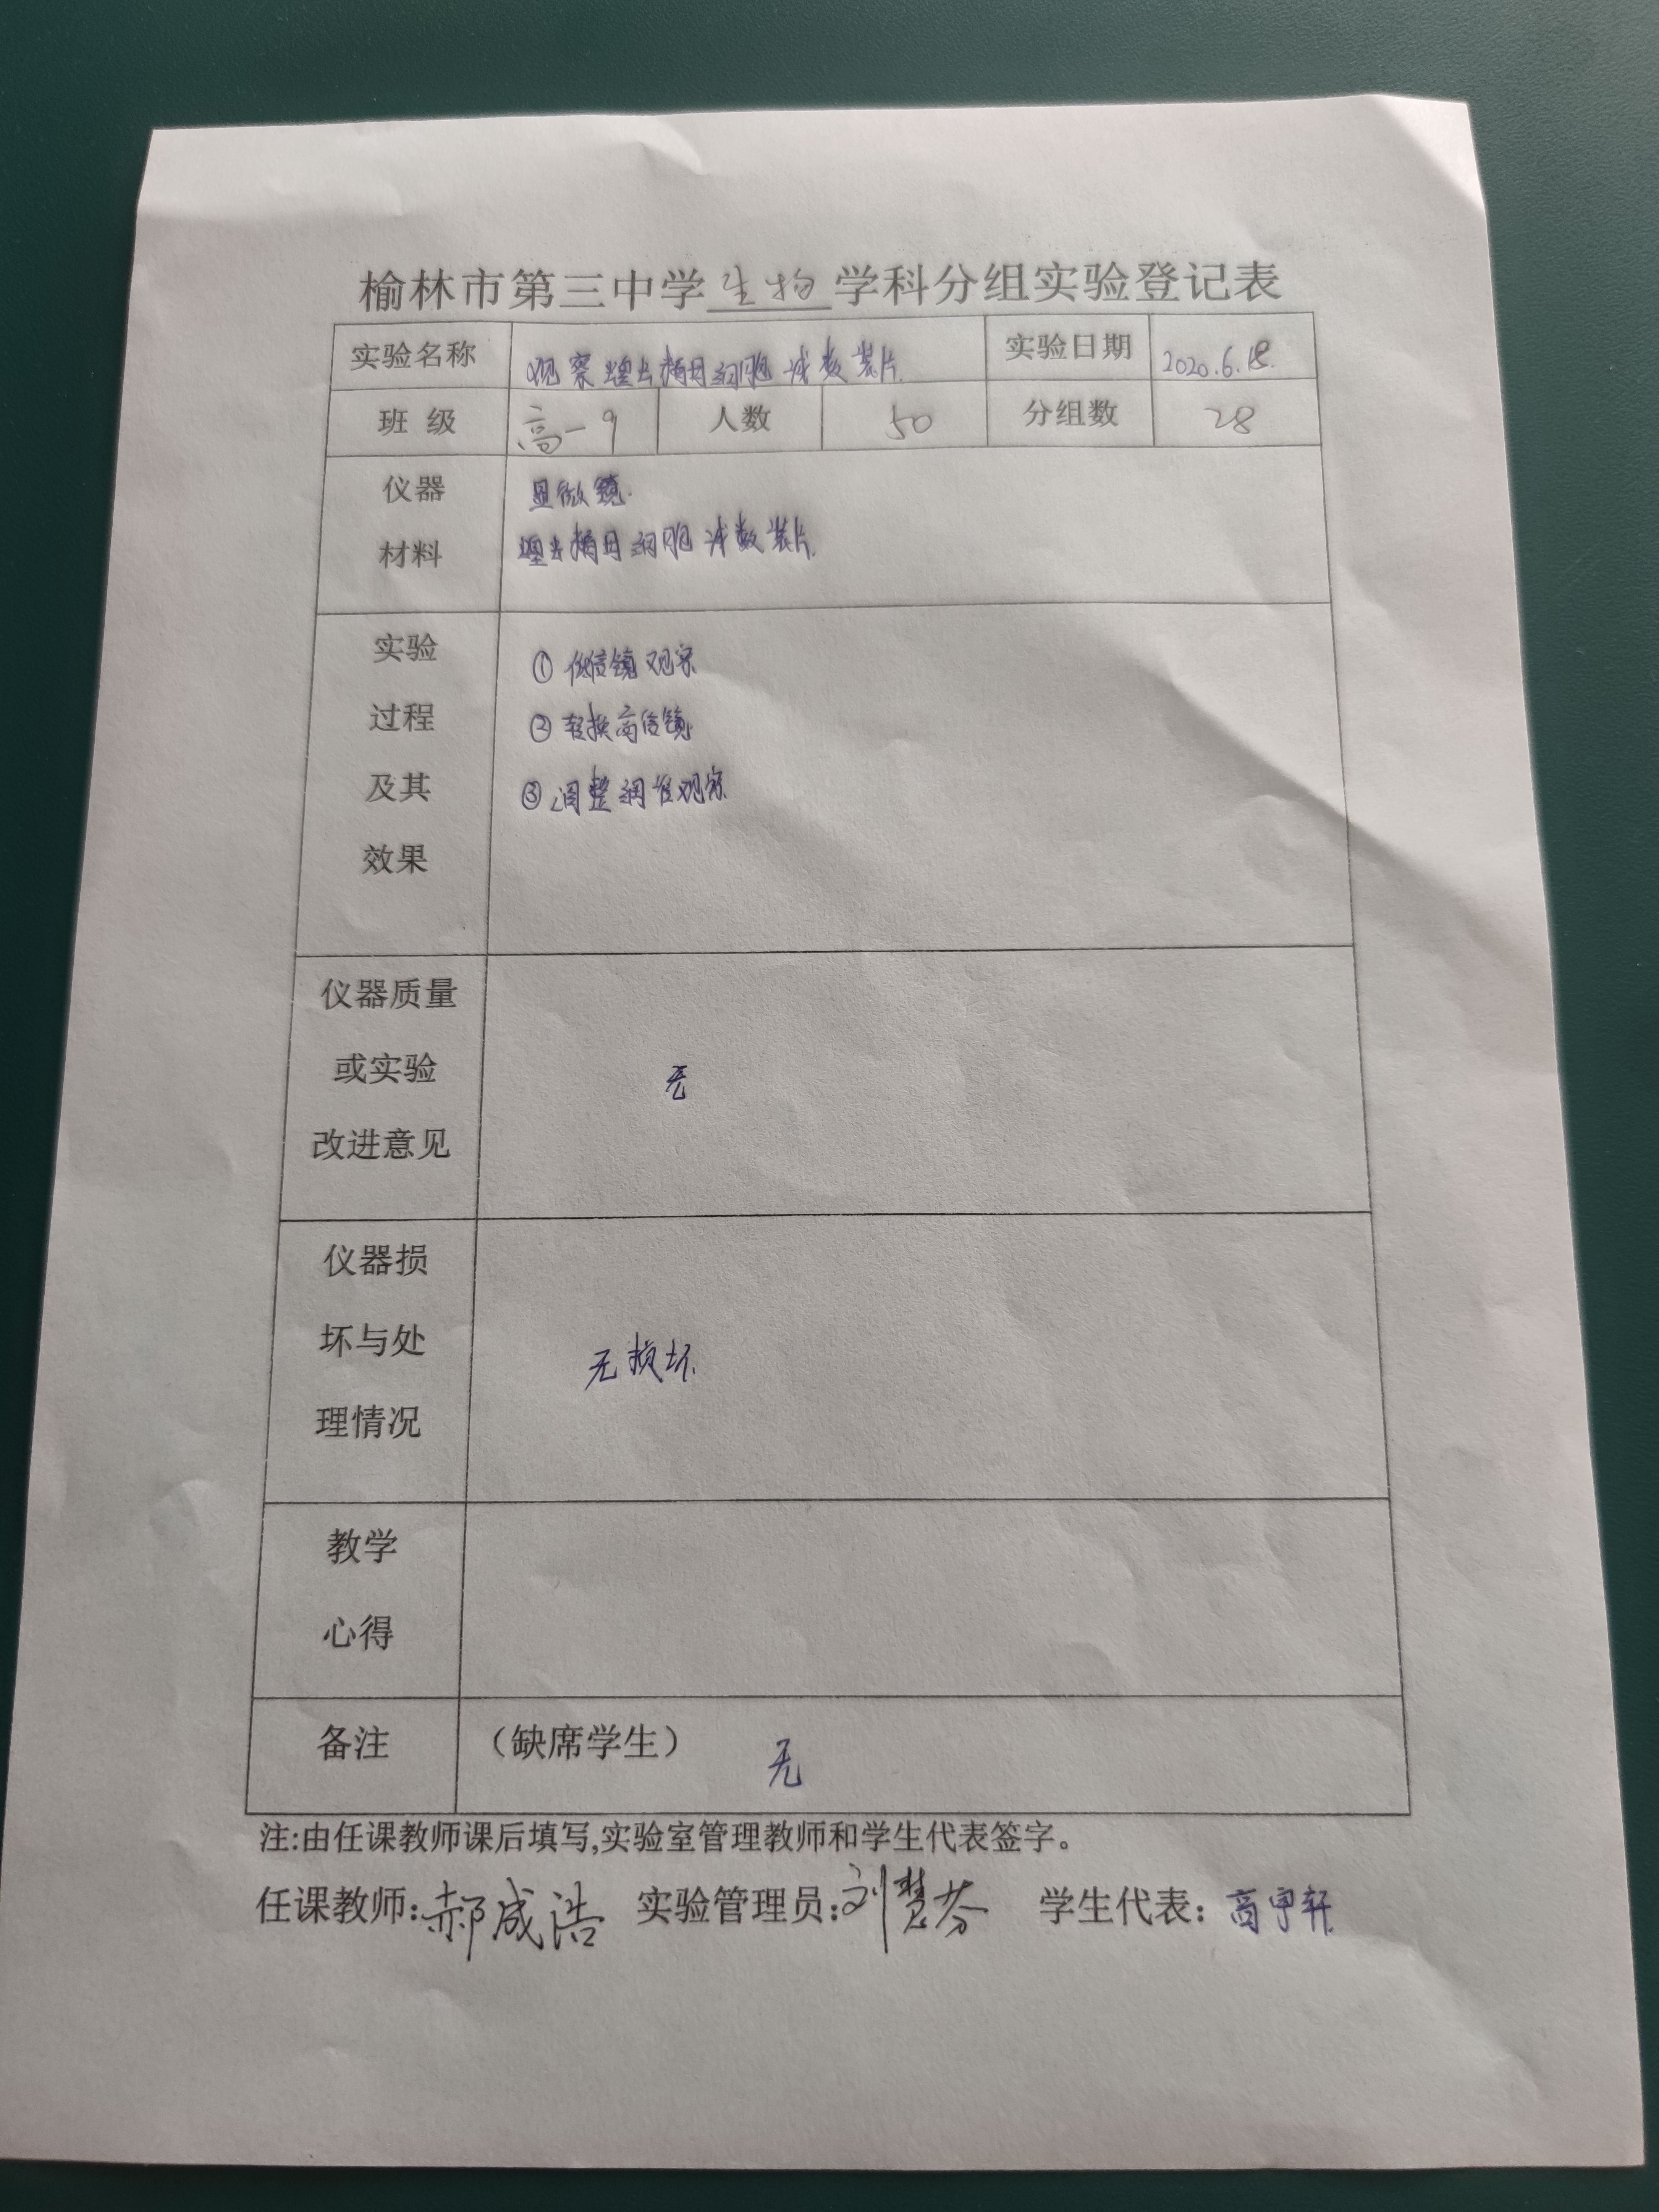 榆林市第三中学生物学科分组实验登记表
实验名称 观察蝗虫精母细胞减数装片. 实验日期 2020.6.18.
班 级 高一9 人数 50 分组数 28
仪器 显微镜.
材料 蝗虫精母细胞减数装片.
实验 ① 低倍镜观察
过程 ② 转换高倍镜
及其 ③ 调整 观察
效果
仪器质量
或实验 无
改进意见
仪器损
坏与处 无损坏.
理情况
教学
心得
备注 （缺席学生） 无
注:由任课教师课后填写,实验室管理教师和学生代表签字。
任课教师:郝成浩 实验管理员:刘慧芬 学生代表：高宇轩